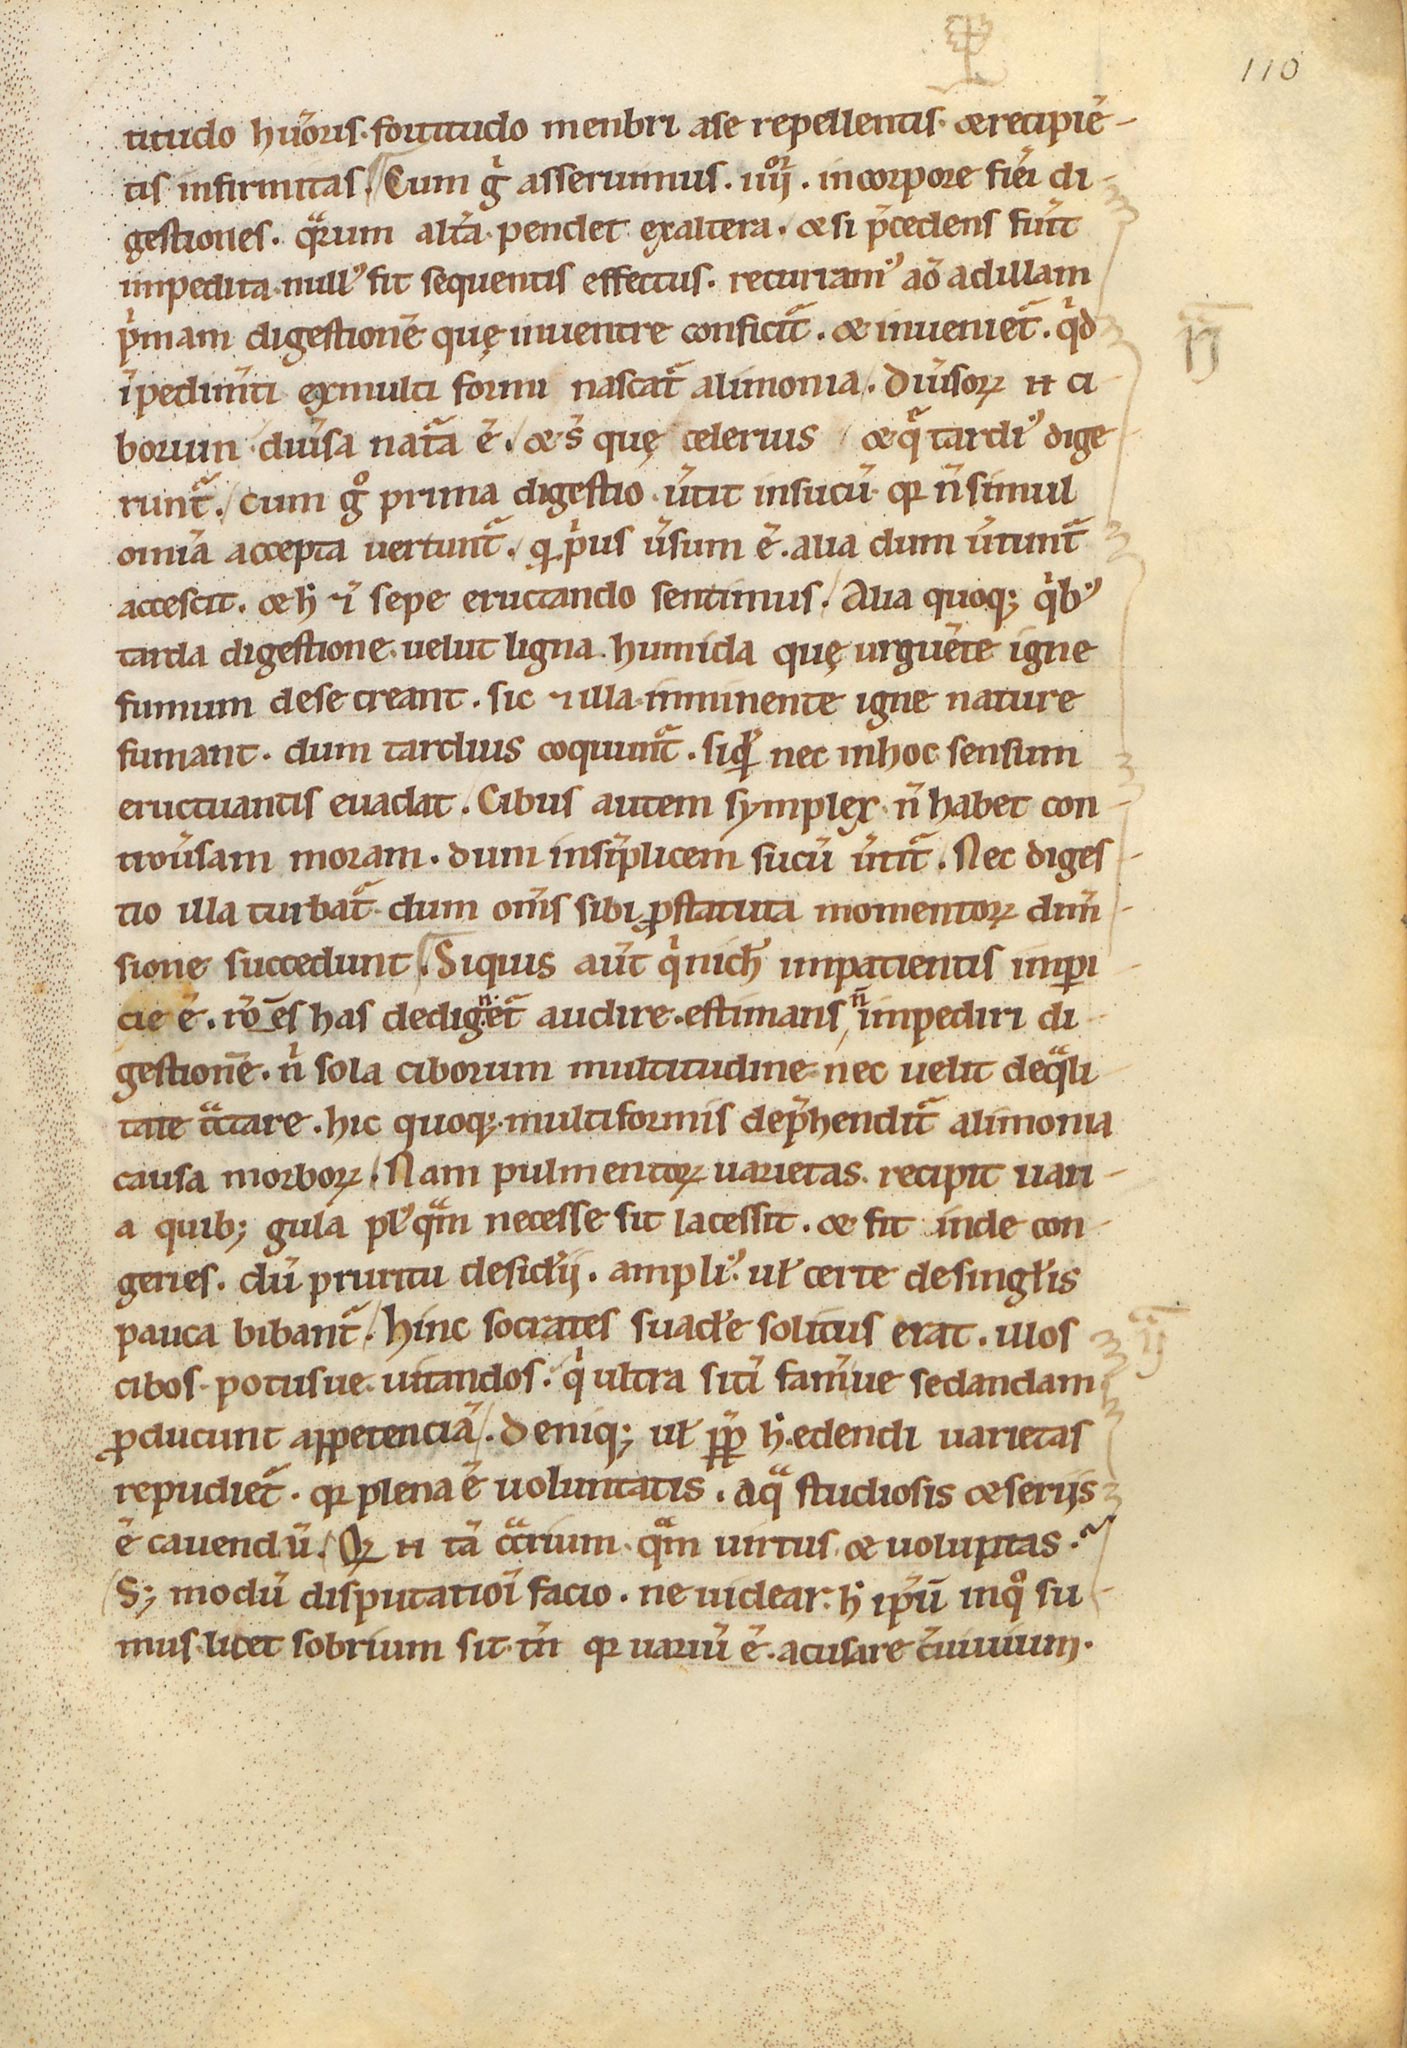 110
titudo hu̅oris. fortitudo menbri ase repellentis. & recipie̅
tis infirmitas. Cum gͥ asserimus. iiiiᵒʳ. incorpore fieri di
gestiones. qᷓrum alt̅a pendet exaltera. & si p̅cedens fu̅it
impedita. null᾿ fit sequentis effectus. recuriam᾿ ao̅ adillam
pͥmam digestione̅ quę inventre conficit᷑. & inueniet᷑. qͥd
i̅pedim̅ti exmulti formi nascat᷑ alimonia. diu̅soꝝ n̅ ci
borum diu̅sa nat᷑a e̅. & s̅ quę celerius & q᷑ tardi᾿ dige
runt᷑. Cum gͦ prima digestio u̅tit insucu̅. qꝛ n̅ simul
omia̅ accepta vertunt᷑. qͥ pͥus u̅sum e̅. alia dum u̅tunt᷑
accescit. & h̅ et̅ sepe eructando sentimus. Alia quoq; qͥb᾿
tarda digestione. uelut ligna humida quę urgue̅te igne
fumum dese creant. sic & illa imminente igne nature
fumant. dum tardius coquunt᷑. siqͥdē nec inhoc sensum
eructuantis euadat. Cibus autem symplex n̅ habet con
trou̅sam moram. dum insi̅plicem sucu̅ u̅tit᷑. Nec diges
tio illa turbat᷑. dum om̅s sibi ꝓstatuta momentoꝝ dim̅
sione succedunt. Siquis aut̅ qͥ nich̅ impatientis imperi
cie e̅. ro̅es has dedignet᷑ audire. estimans n̅ impediri di
gestione̅. nͥ sola ciborum multitudine nec uelit deqᷓli
tate tᷓctare. hic quoq; multiformis dep̅hendit᷑ alimonia
causa morboꝝ. Nam pulmentoꝝ uarietas. recipit uari
a quib; gula pl᾿qᷓm necesse sit lacessit. & fit inde con
geries. du̅ pruritu desid̅ii. ampli᾿. ul̅ certe desingl̅is
pauca bibant᷑. Hinc socrates suad̅e solitus erat. illos
cibos. potusue uitandos. qͥ ultra siti̅ fam̅ue sedandam
ꝓducunt appetencia̅. Deniq; ul̅ ꝓpt̅ h̅. edendi uarietas
repudiet᷑. qꝛ plena e̅ uoluntatis. Aqᷓ studiosis & seriis
e̅ cauendu̅. Qꝛ n̅ ta̅ cᷓrium. qᷓm uirtus & uoluptas.
S; modu̅ disputatioi̅ facio. ne uidear. h̅ ip̅u̅ inqͦ su
mus. licet sobrium sit. tn̅ qꝛ uariu̅ e̅. acusare c̅uiuium.